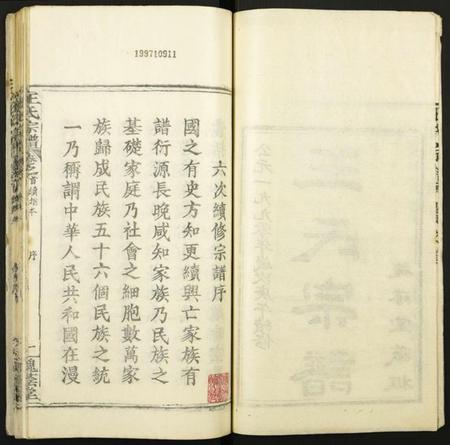 199710911
六次續修宗譜序
國之有史方知更續興亡家族有
譜衍源長晚咸知家族乃民族之
基礎家庭乃社會之細胞數萬家
族歸成民族五十六個民族之統
一乃稱謂中華人民共和國在漫
王氏宗譜
序
二